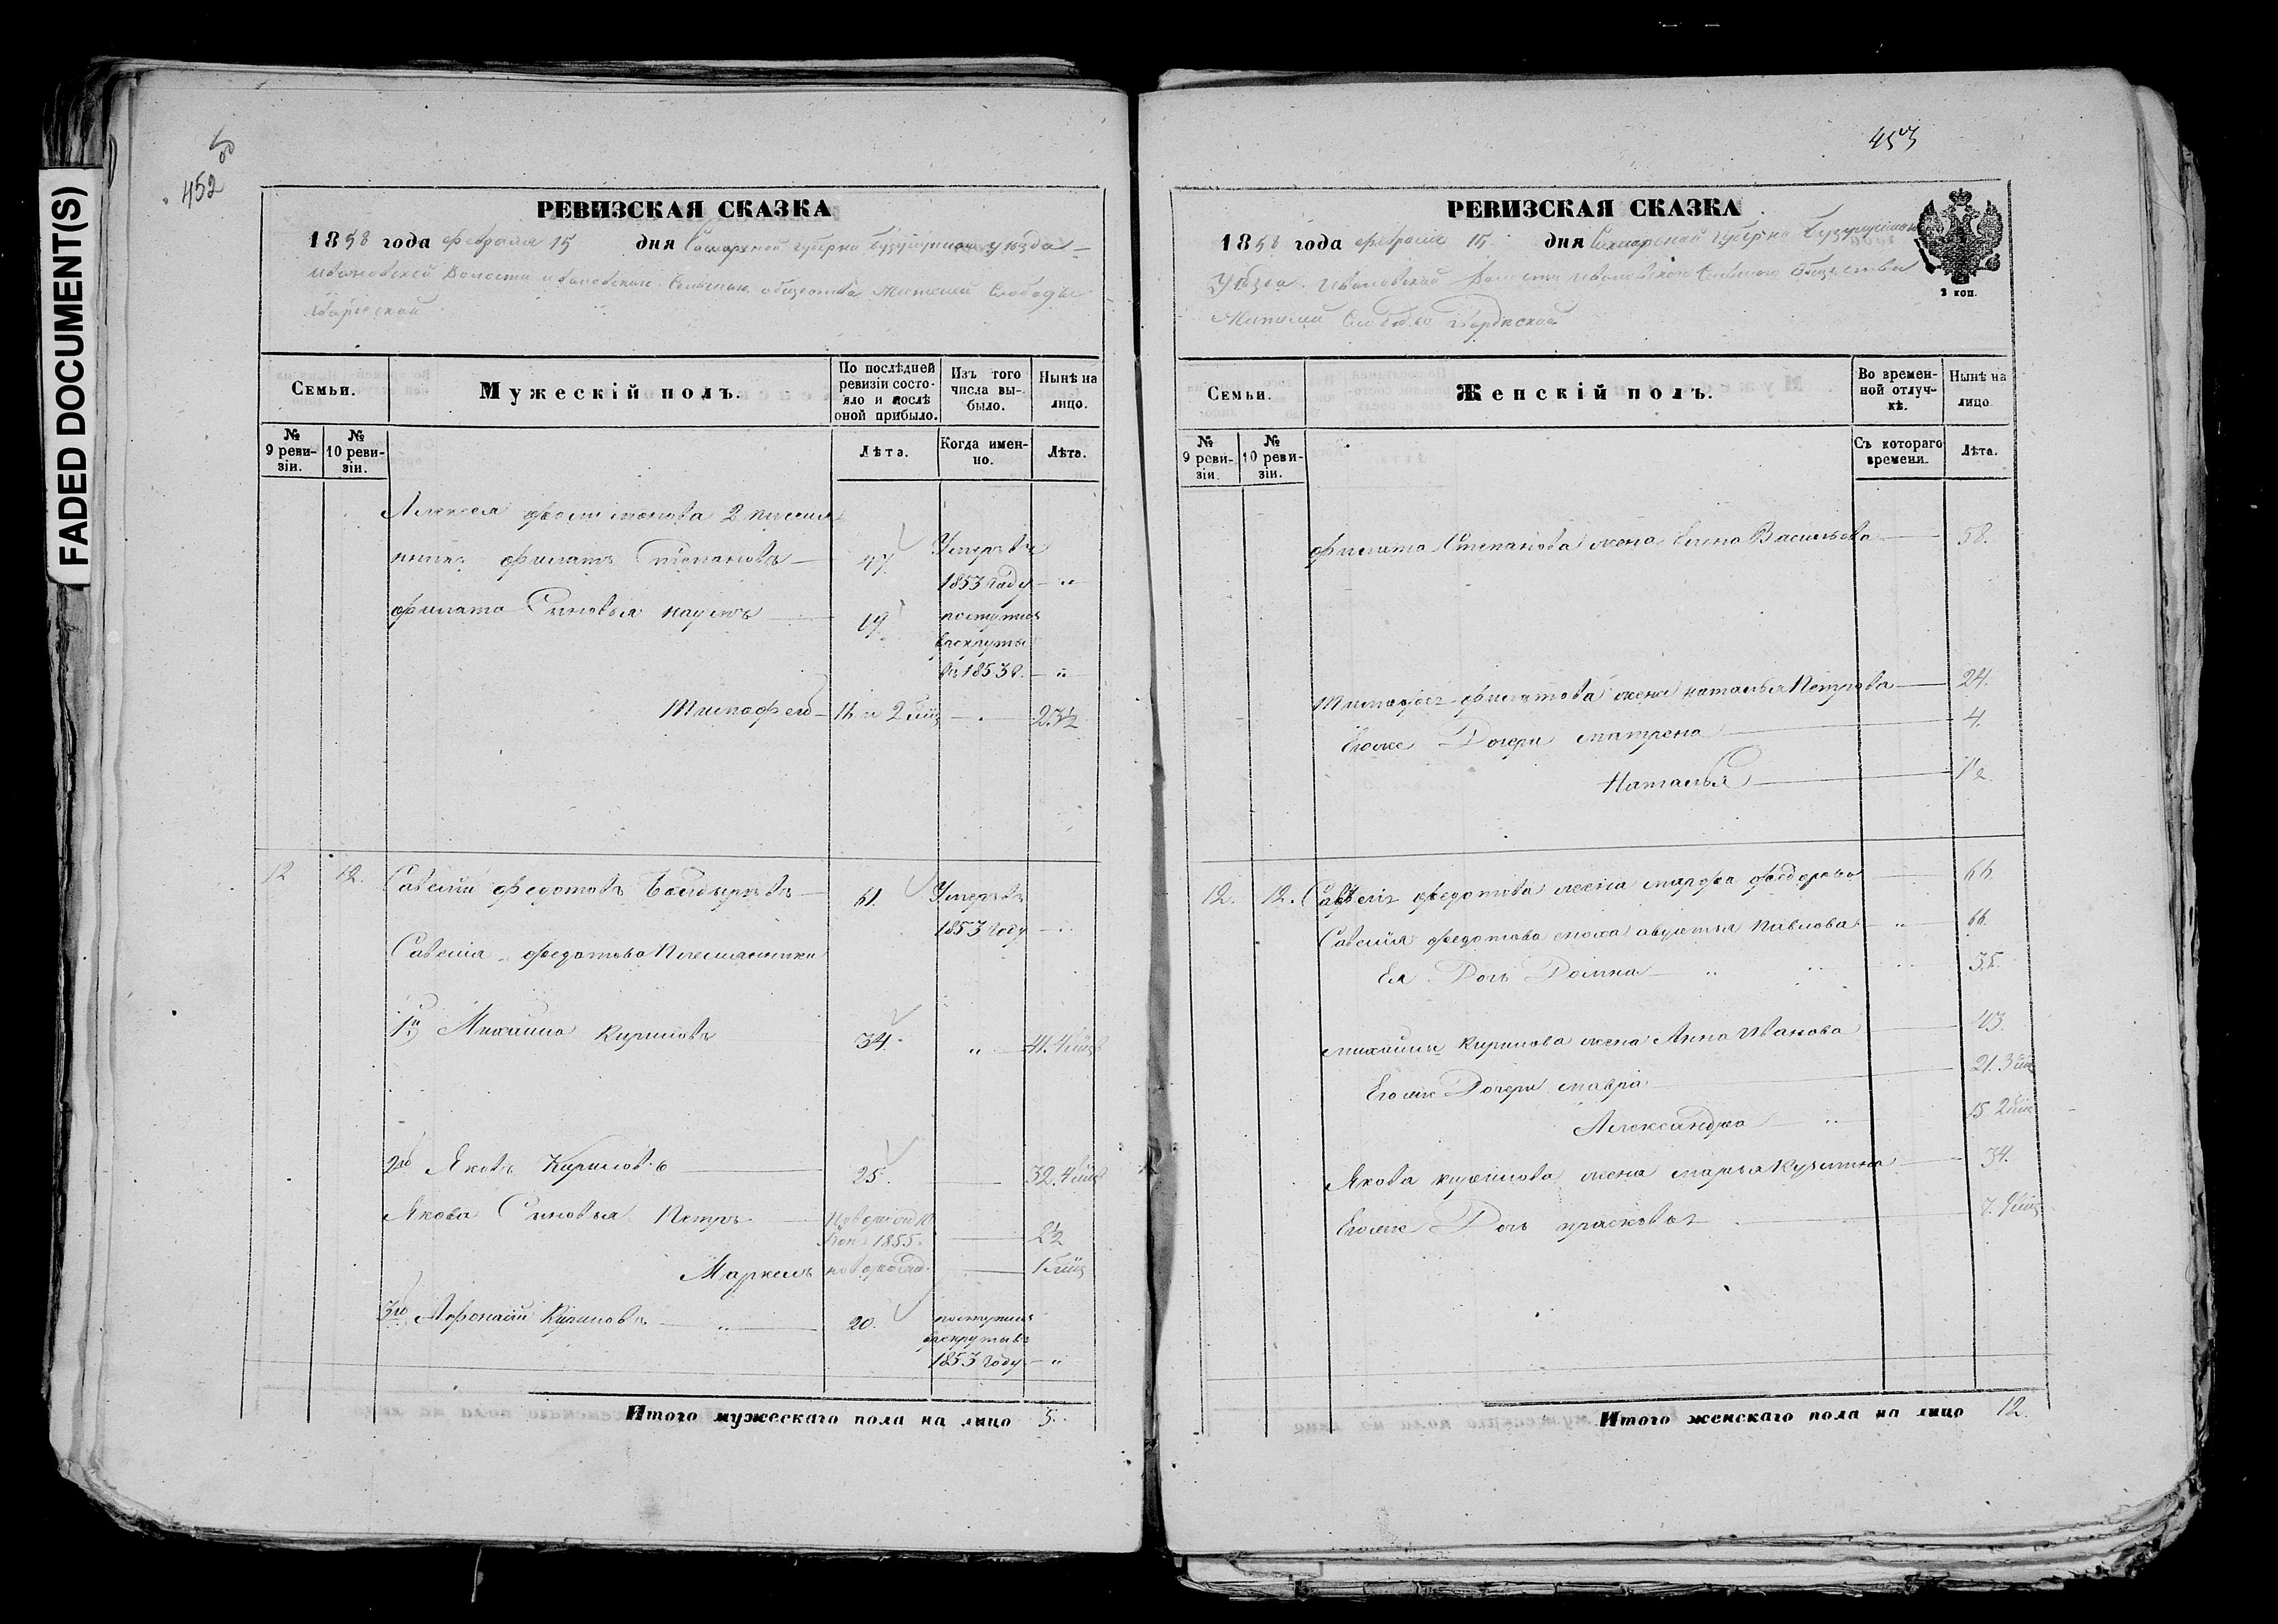 FADED DOCUMENT(S)
452
РЕВИЗСКАЯ СКАЗКА
1858 года февраля 15 дня Самарской губерни Бузулуцкаго уезда
Ивановской Волости Ивановскаго Сельскаго общества Жителей Слободы
По последней ревизіи состо-
яло и послѣ
оной прибыло.
Изъ того
числа вы-
было.
Нынѣ на
лицо.
Семьи.
Мужескій полъ.
№
9 реви-
зіи.
№
10 реви-
зіи.
Лѣта.
Когда имен-
но.
Лѣта.
Алексея 2 племян
никъ филатъ Степановъ 47 Умеръ въ
1853 году "
филата Сыновья наумъ 19 поступилъ
врекруты
въ 1853 г. "
Тимофей 16 и 2 мц 23½
12 12. Савелій Федотовъ 61. Умеръ въ
1853 году
Савелія Федотова Племянники
1й Михайло Кириловъ 34. " 41. 4 мц
2й Яковъ Кириловъ 25. 32. 4 мц
Якова Сыновья Петръ 1855. 2½
Маркелъ новорожд.
3й Афонасій Кириловъ " 20. поступилъ
врекруты въ
1853 году "
Итого мужескаго пола на лицо 5.
453
РЕВИЗСКАЯ СКАЗКА
1858 года февраля 15 дня Самарской губерни Бузулуцкаго
Уѣзда Ивановской Волости Ивановскаго Сельскаго Общества
Жителей Слободы
2 коп.
Семьи.
Женскій полъ.
Во времен-
ной отлуч-
кѣ.
Нынѣ на
лицо
№
9 реви-
зіи.
№
10 реви-
зіи.
Съ котораго
времени.
Лѣта.
филата Степанова жена Елена Васильева 58.
Тимофея филатова жена наталья Петрова 24.
Егоже Дочери матрена 4.
Наталья ½
12. 12. Савелія федотова жена марфа федорова 66
Савелія федотова сноха авдотья павлова " 66.
Ея Дочь Домна " 35.
михайлы Кирилова жена Анна Иванова 43.
Егоже Дочери мавра 21. 3 мц
Александра " 15 2 мц
Якова кирилова жена марья Кузмина 34.
Егоже Дочь прасковья 7. 9 мц
Итого женскаго пола на лицо 12.